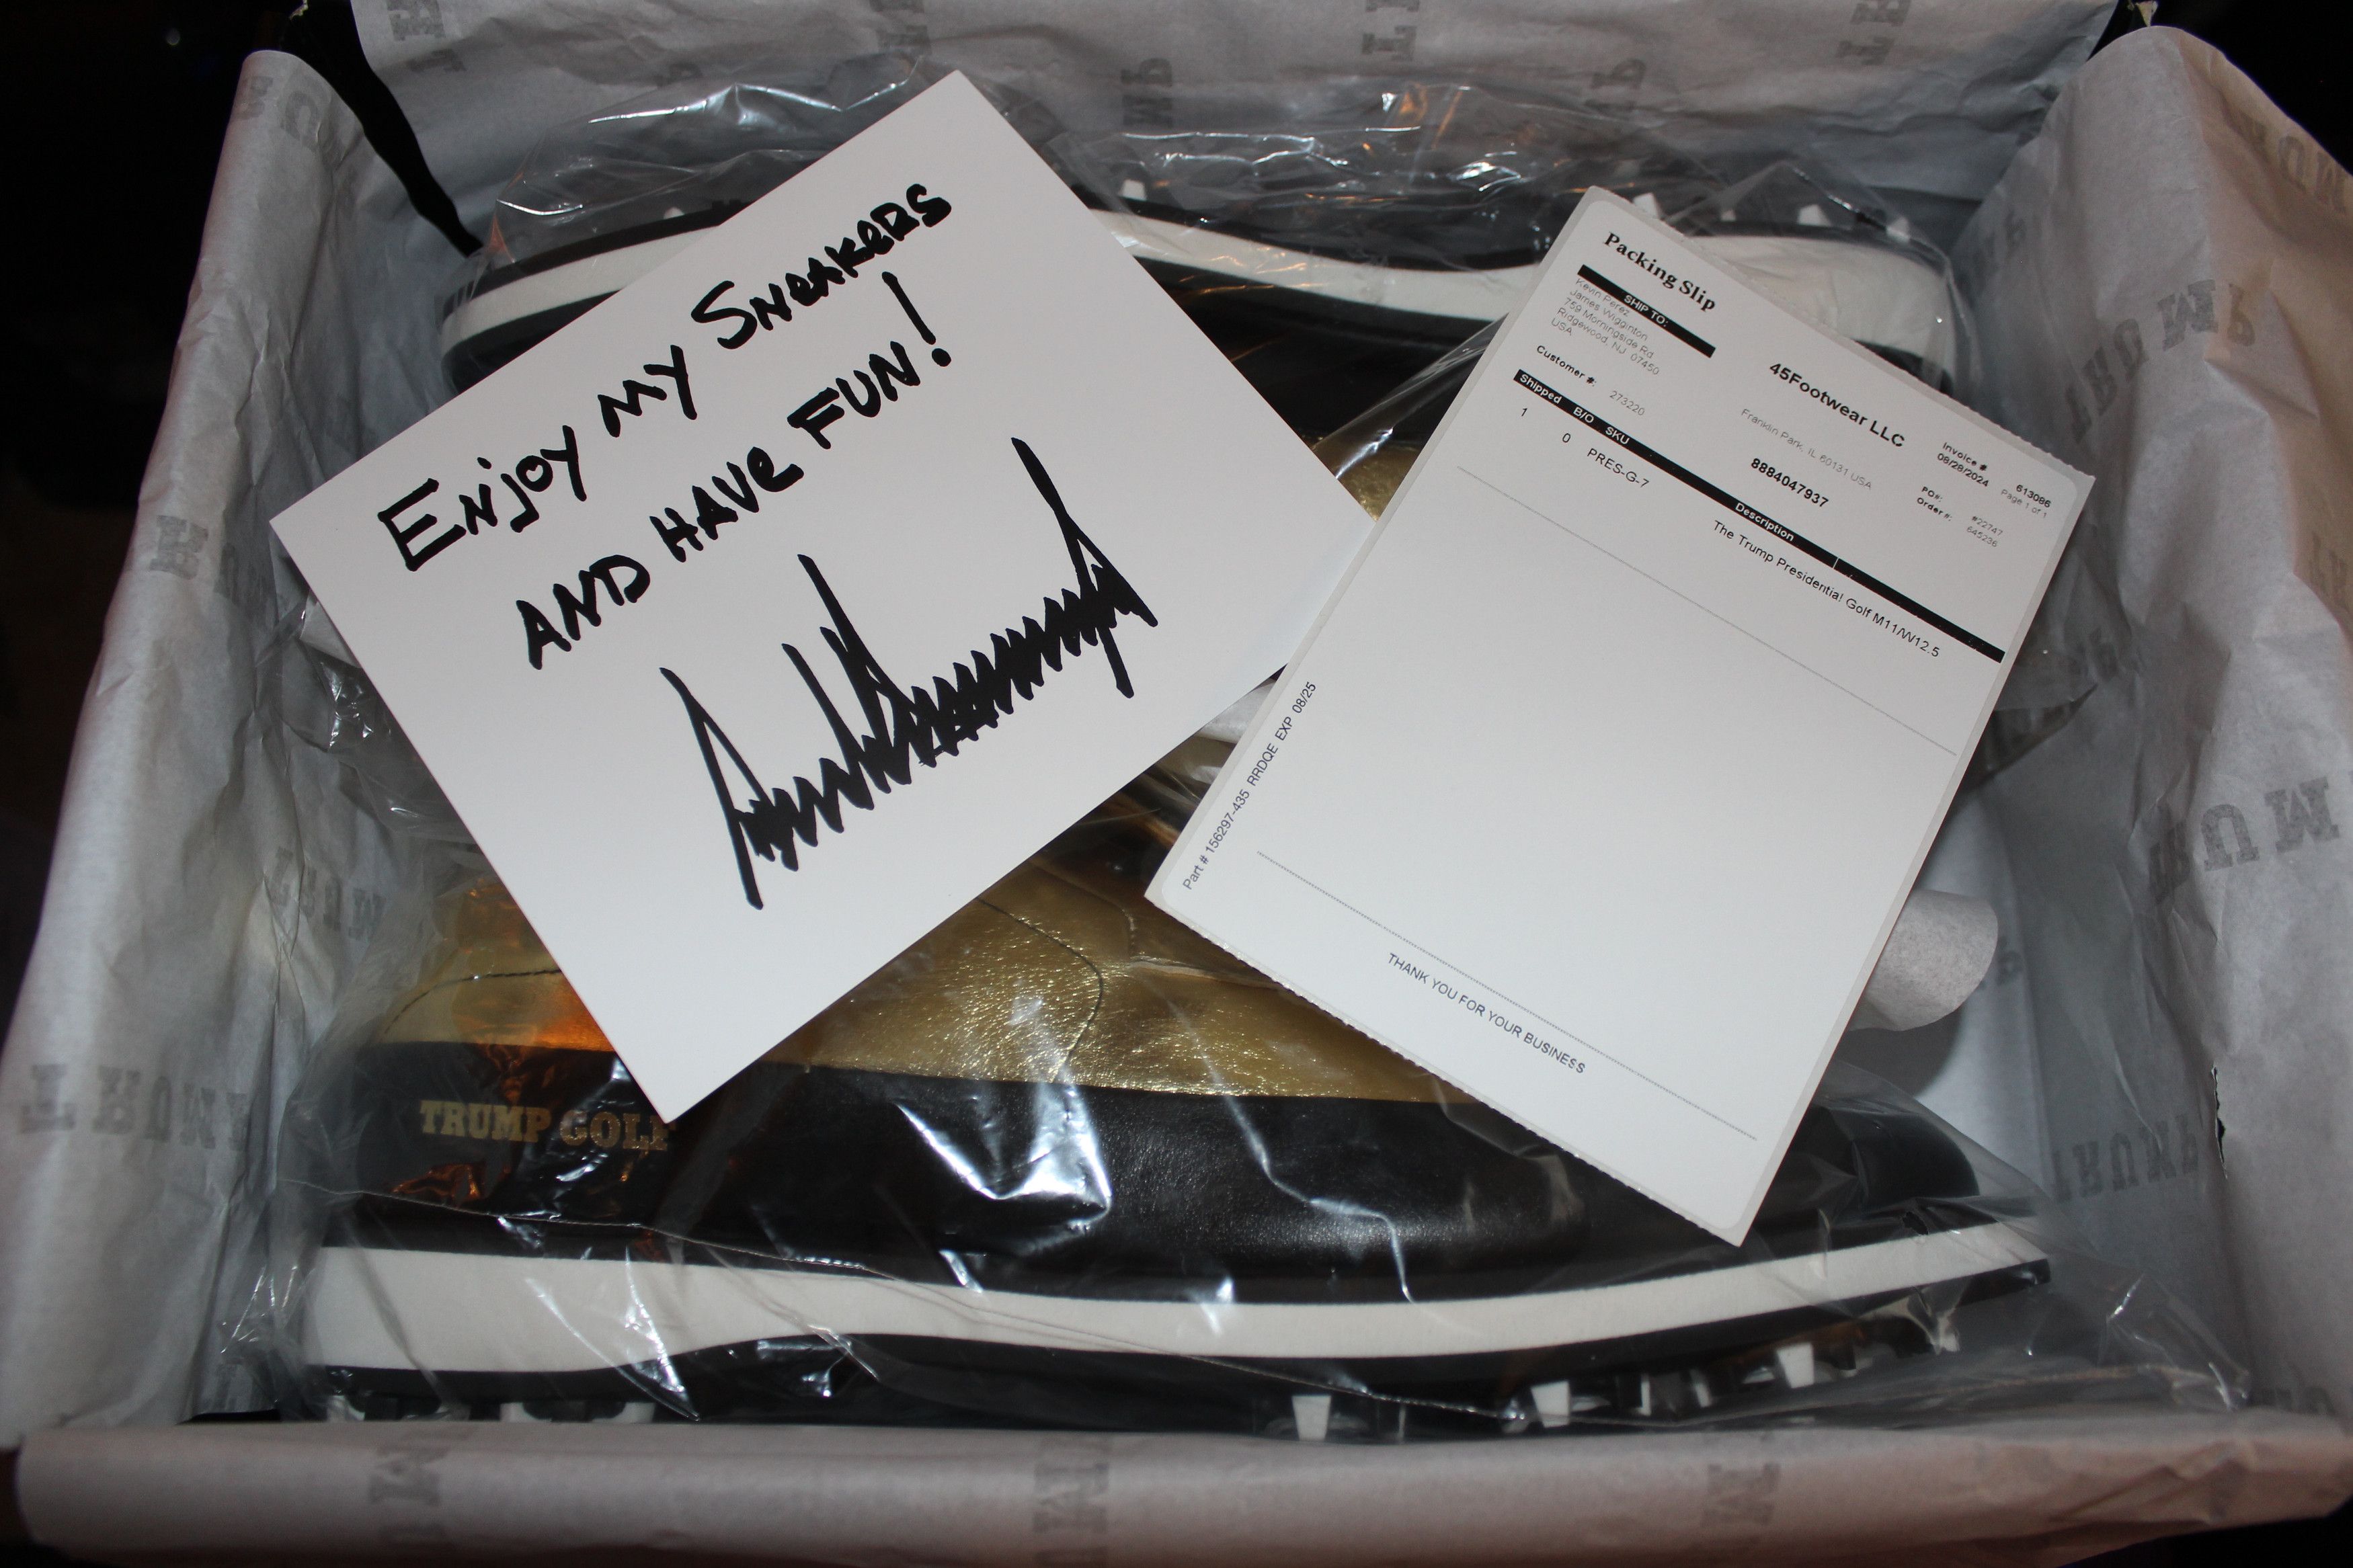 Enjoy my Sneakers
AND HAVE FUN!
Packing Slip
SHIP TO:
Kevin Perez
James Wigginton
759 Morningside Rd
Ridgewood, NJ 07450
USA
Customer #: 273220
45Footwear LLC
Franklin Park, IL 60131 USA
8884047937
Invoice # 613086
08/28/2024 Page 1 of 1
PO#: #22747
Order #: 645236
Shipped B/O SKU Description
1 0 PRES-G-7 The Trump Presidential Golf M11/W12.5
THANK YOU FOR YOUR BUSINESS
Part # 156297-435 RRDQE EXP 08/25
TRUMP GOLF
TRUMP
TRUMP
TRUMP